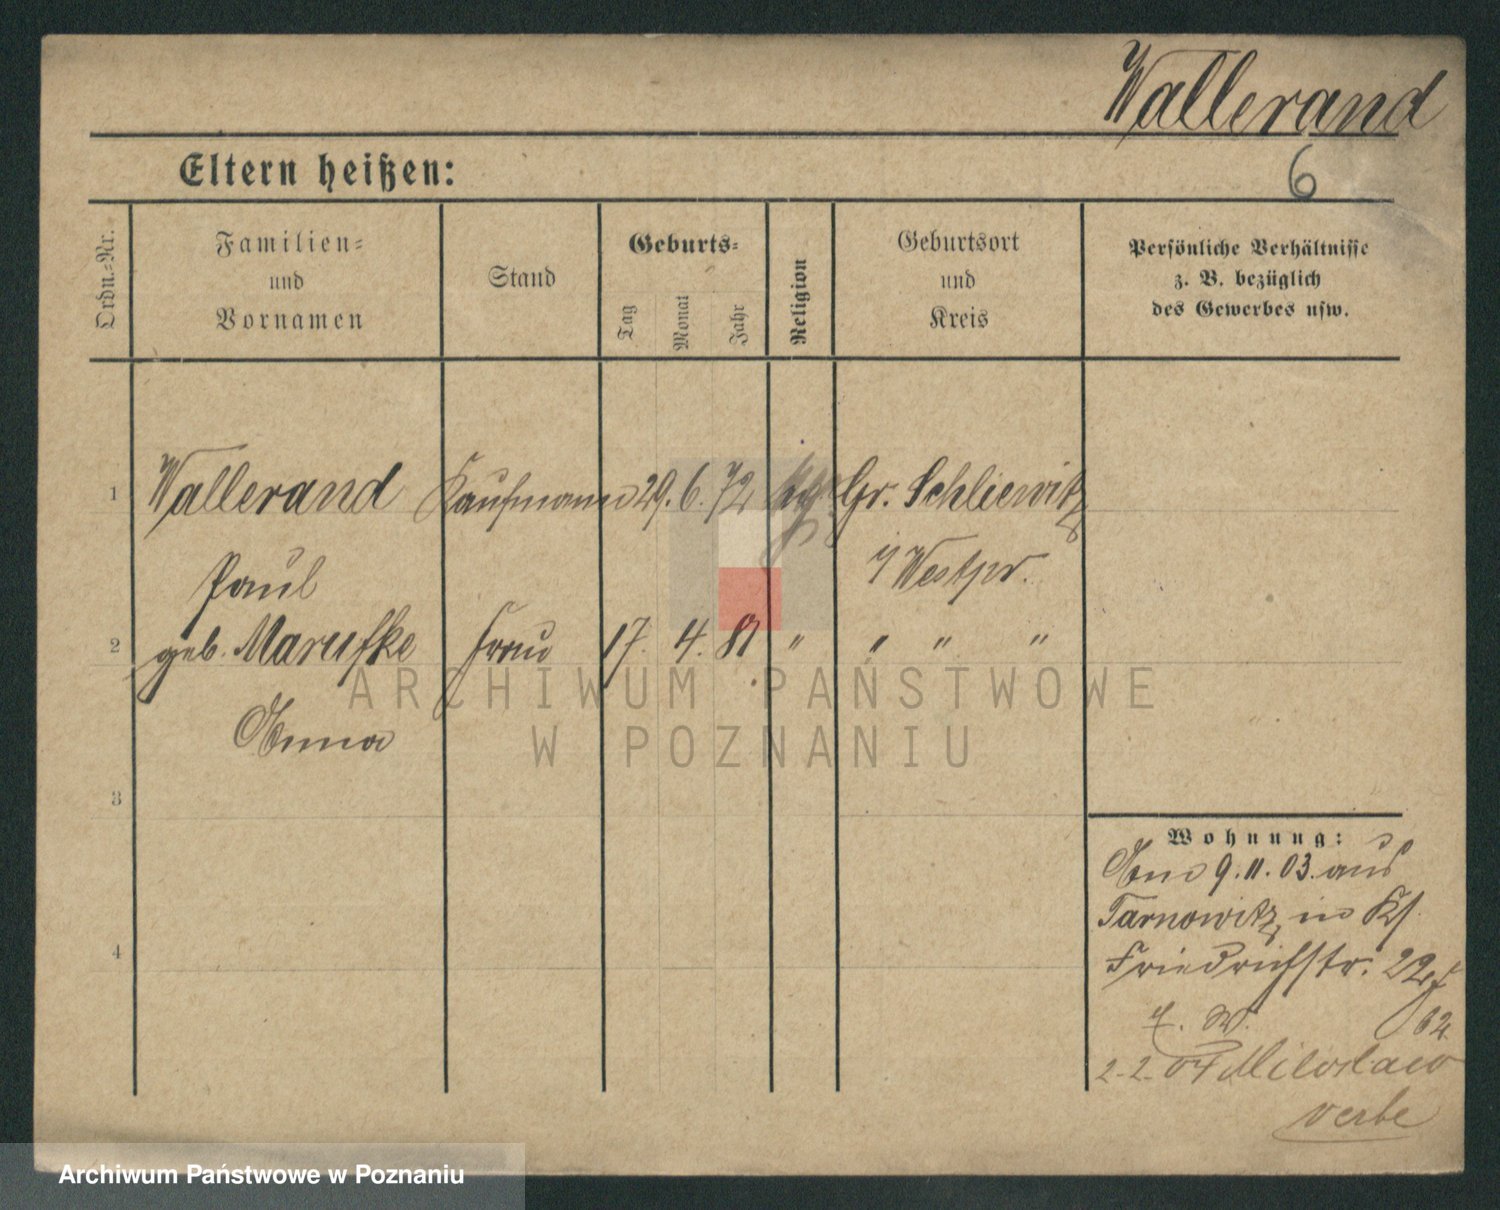 Wallerand
6
Eltern heißen:
Ordn.-Nr.
Familien-
und
Vornamen
Stand
Geburts-
Tag
Monat
Jahr
Religion
Geburtsort
und
Kreis
Persönliche Verhältnisse
z. B. bezüglich
des Gewerbes usw.
1 Wallerand Kaufmann 29. 6. 72 Gr. Schliewitz
Paul
i/ Westpr.
2 geb. Marufke Frau 17. 4. 81 " " " "
Anna
3
4
Wohnung:
Am 9.11.03 aus
Tarnowitz, in
Friedrichstr. 22
2.2.04 Miloslaw
ARCHIWUM PAŃSTWOWE
W POZNANIU
Archiwum Państwowe w Poznaniu